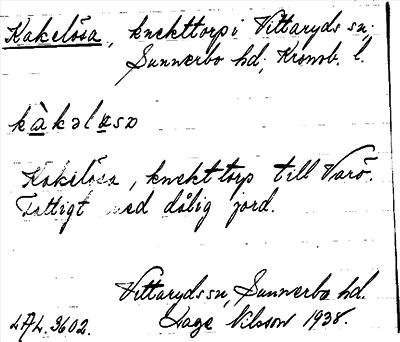 Kakelösa, knekttorp i Vittaryds sn,
Sunnerbo hd, Kronob. l.
kàkəløsɒ
Kakelösa, knekttorp till Varö.
Fattigt med dålig jord.
Vittaryds sn, Sunnerbo hd.
LAL. 3602. Lage Nilsson 1938.